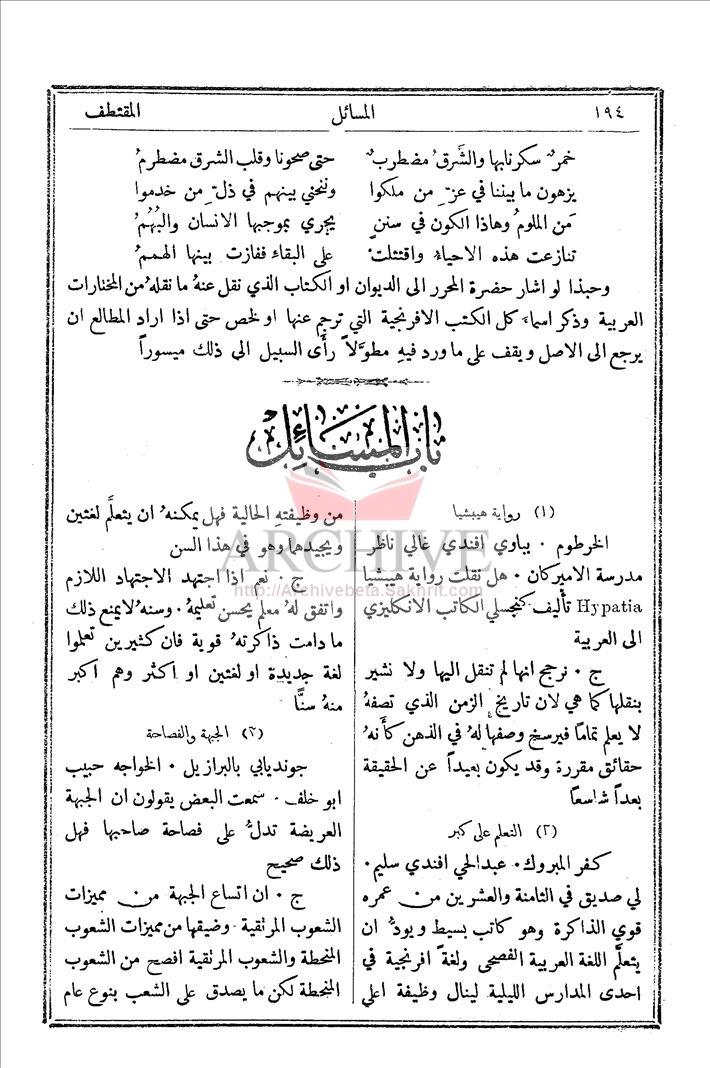 ١٩٤ المسائل المقتطف
خمرٌ سكرنا بها والشَّرق مضطربٌ حتى صحونا وقلب الشرق مضطرمُ
يزهون ما بيننا في عزّ من ملكوا وننحني بينهم في ذلّ من خدموا
مَن الملومُ وهاذا الكون في سننٍ يجري بموجبها الانسان والبُهُمُ
تنازعت هذه الاحياءُ واقتتلت على البقاء ففازت بينها الهممُ
وحبذا لو اشار حضرة المحرر الى الديوان او الكتاب الذي نقل عنهُ ما نقلهُ من المختارات
العربية وذكر اسماء كل الكتب الافرنجية التي ترجم عنها او لخص حتى اذا اراد المطالع ان
يرجع الى الاصل ويقف على ما ورد فيهِ مطوَّلاً رأَى السبيل الى ذلك ميسوراً
باب المسائل
(١) رواية هيبشيا
الخرطوم ٠ بباوي افندي غالي ناظر
مدرسة الاميركان ٠ هل نقلت رواية هيبشيا
Hypatia تأليف كنجسلي الكاتب الانكليزي
الى العربية
ج ٠ نرجح انها لم تنقل اليها ولا نشير
بنقلها كما هي لان تاريخ الزمن الذي تصفهُ
لا يعلم تماماً فيرسخ وصفها لهُ في الذهن كأنهُ
حقائق مقررة وقد يكون بعيداً عن الحقيقة
بعداً شاسعاً
(٢) التعلم على كبر
كفر المبروك ٠ عبد الحي افندي سليم ٠
لي صديق في الثامنة والعشرين من عمره
قوي الذاكرة وهو كاتب بسيط ويودُّ ان
يتعلَّم اللغة العربية الفصحى ولغة افرنجية في
احدى المدارس الليلية لينال وظيفة اعلى
من وظيفتهِ الحالية فهل يمكنهُ ان يتعلَّم لغتين
ويجيدها وهو في هذا السن
ج ٠ نعم اذا اجتهد الاجتهاد اللازم
واتفق لهُ معلم يحسن تعليمهُ ٠ وسنهُ لا يمنع ذلك
ما دامت ذاكرتهُ قوية فان كثيرين تعلموا
لغة جديدة او لغتين او اكثر وهم اكبر
منهُ سنًّا
(٣) الجبهة والفصاحة
جونديابي بالبرازيل ٠ الخواجه حبيب
ابو خلف ٠ سمعت البعض يقولون ان الجبهة
العريضة تدلُّ على فصاحة صاحبها فهل
ذلك صحيح
ج ٠ ان اتساع الجبهة من مميزات
الشعوب المرتقية ٠ وضيقها من مميزات الشعوب
المنحطة والشعوب المرتقية افصح من الشعوب
المنحطة لكن ما يصدق على الشعب بنوع عام
ARCHIVE
http://Archivebeta.Sakhrit.com